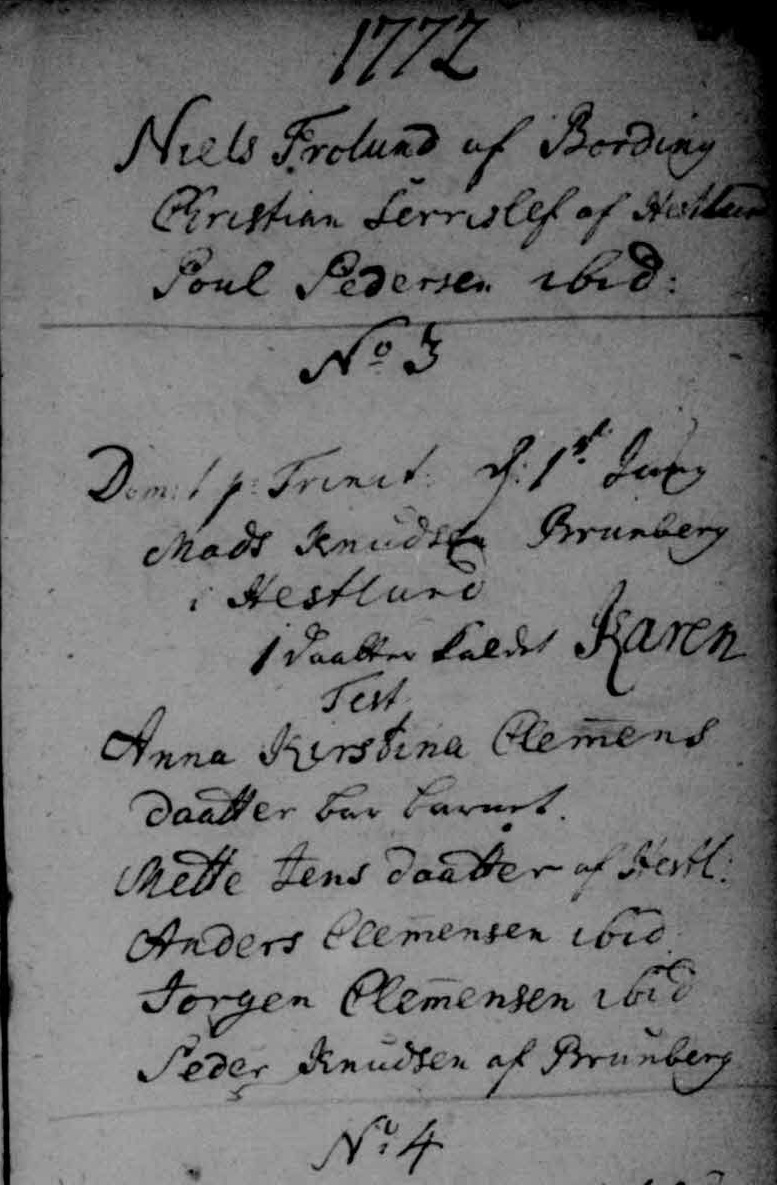 1772
Niels Frolund af Bording
Christian Serrislef af Hestlund
Poul Pedersen ibid:
No 3
Dom: 1 p: Trinit: d: 1st Juny
Mads Knudsen Brunberg
i Hestlund
1 daatter kaldet Karen
Test
Anna Kirstina Clem̄ens
daatter bar barnet.
Mette Jens daatter af Hestl:
Anders Clem̄ensen ibid
Jorgen Clem̄ensen ibid
Peder Knudsen af Brunberg
No: 4